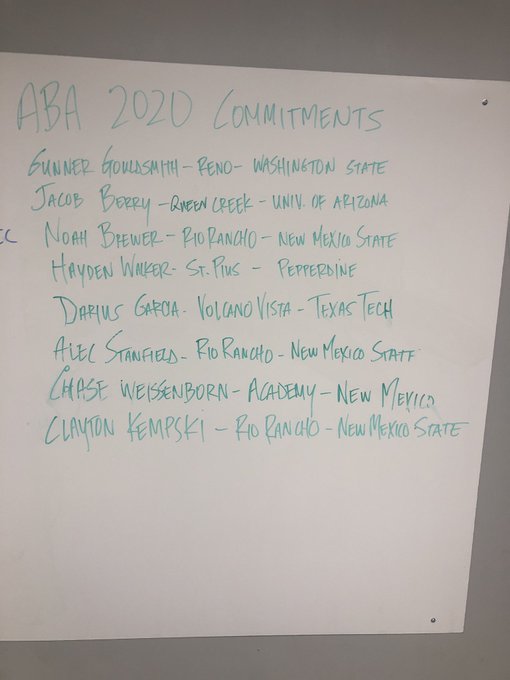 ABA 2020 COMMITMENTS
GUNNER GOULDSMITH - RENO - WASHINGTON STATE
JACOB BERRY - QUEEN CREEK - UNIV. OF ARIZONA
NOAH BREWER - RIO RANCHO - NEW MEXICO STATE
HAYDEN WALKER - ST. PIUS - PEPPERDINE
DARIUS GARCIA - VOLCANO VISTA - TEXAS TECH
ALEC STANFIELD - RIO RANCHO - NEW MEXICO STATE
CHASE WEISSENBORN - ACADEMY - NEW MEXICO
CLAYTON KEMPSKI - RIO RANCHO - NEW MEXICO STATE